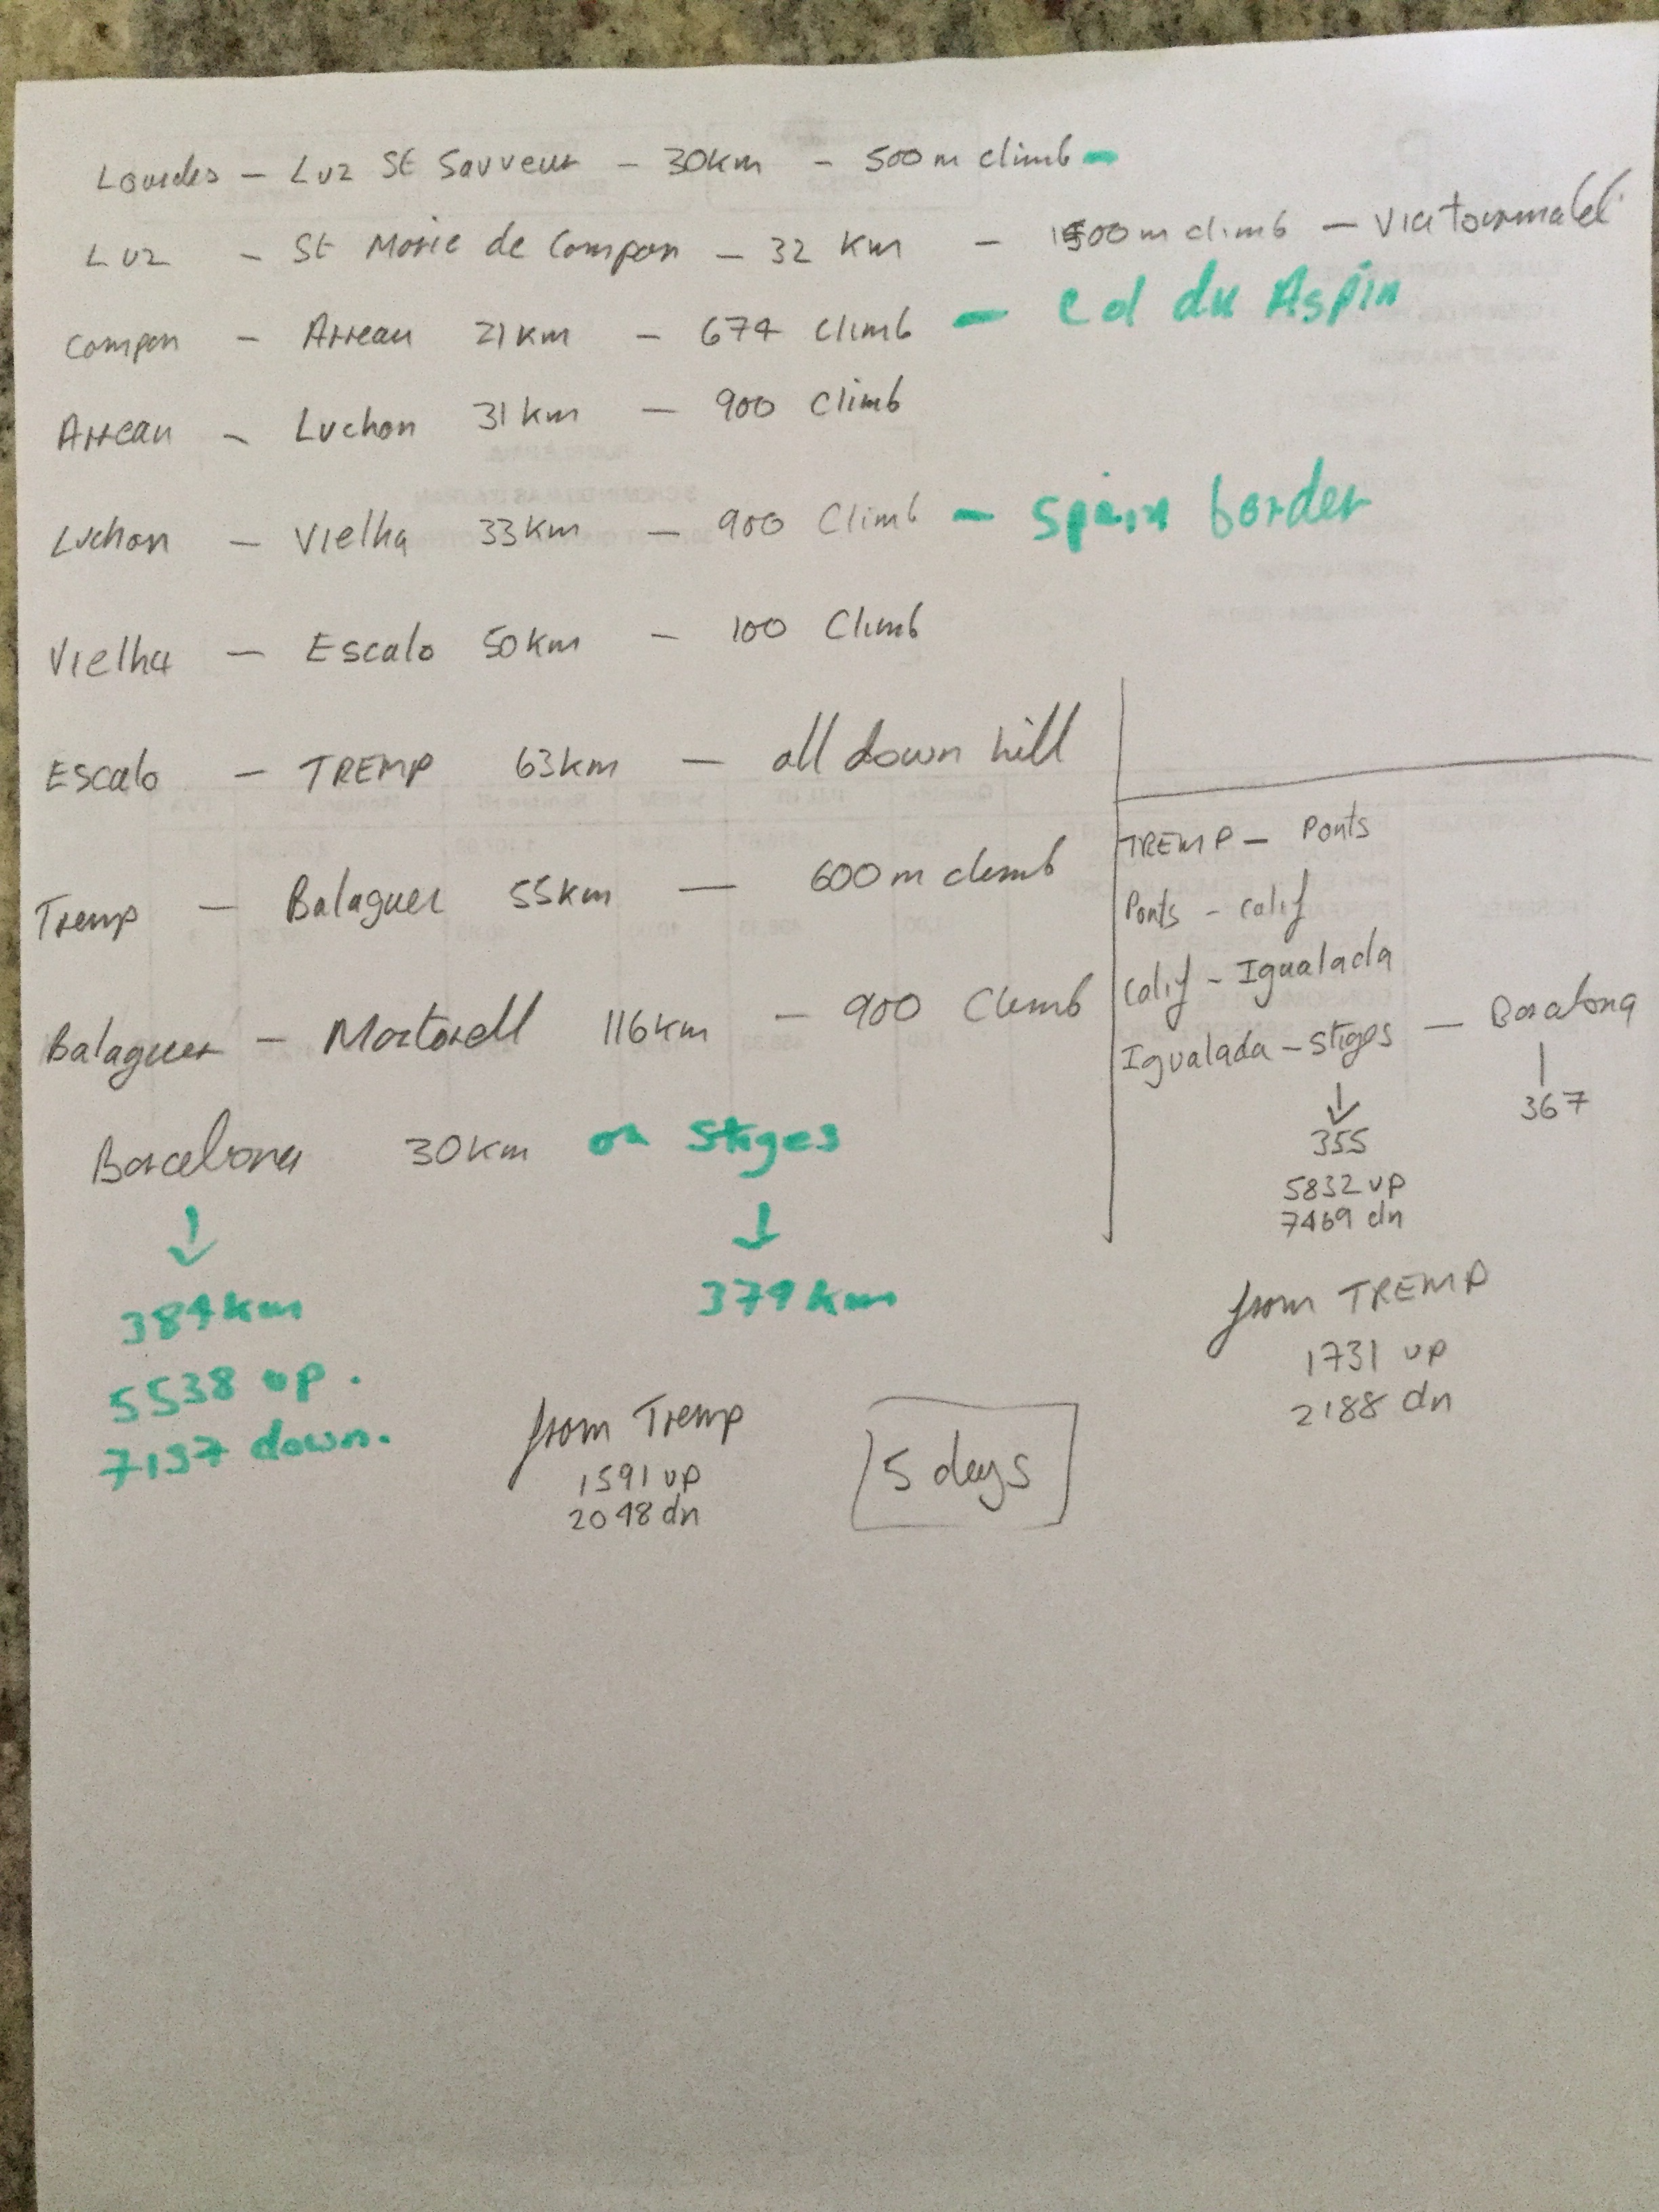 Lourdes – Luz St Sauveur – 30km – 500m climb –
Luz – St Marie de Campan – 32 km – 1500m climb – Via tourmalet
Campan – Arreau 21km – 674 climb – Col du Aspin
Arreau – Luchon 31km – 900 climb
Luchon – Vielha 33km – 900 Climb – Spain border
Vielha – Escalo 50km – 100 Climb
Escalo – TREMP 63km – all down hill
Tremp – Balaguer 55km – 600m climb
Balaguer – Martorell 116km – 900 Climb
Barcelona 30km or Stiges
384km
5538 up.
7137 down.
379km
from Tremp
1591 up
2048 dn
5 days
TREMP – Ponts
Ponts – Calif
Calif – Igualada
Igualada – Stiges – Barcelona
355
5832 up
7469 dn
367
from TREMP
1731 up
2188 dn